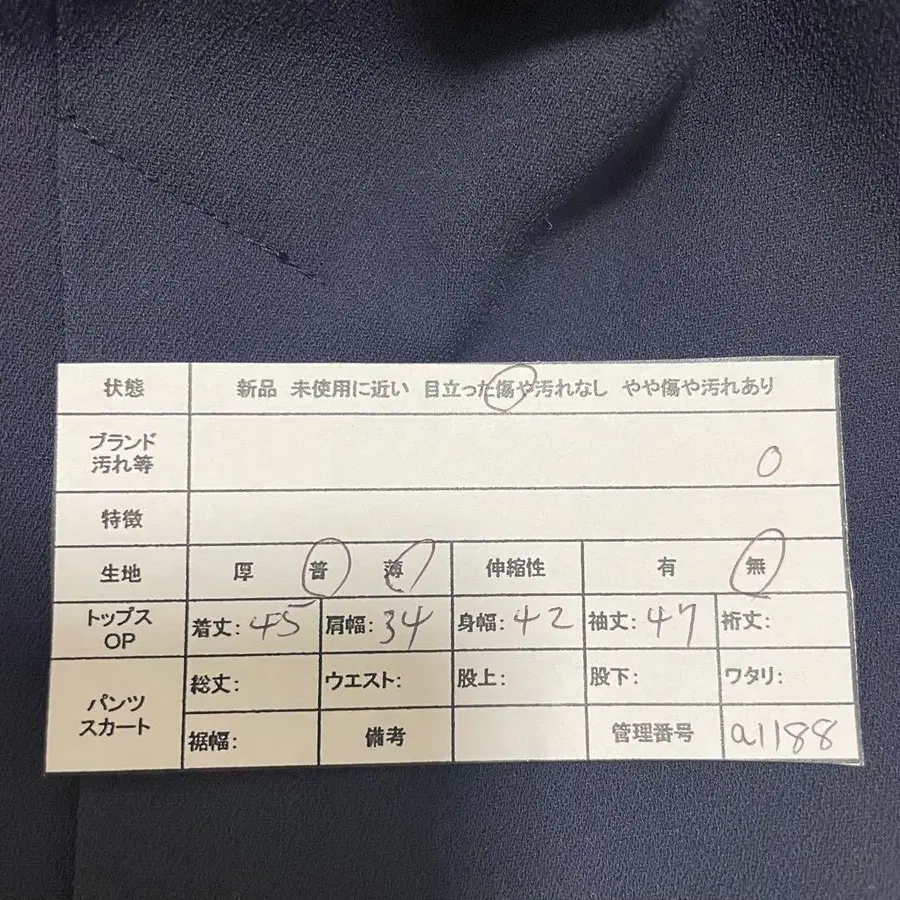 状態 新品 未使用に近い 目立った傷や汚れなし やや傷や汚れあり
ブランド
汚れ等
0
特徴
生地 厚 普 薄 伸縮性 有 無
トップス
OP
着丈: 45 肩幅: 34 身幅: 42 袖丈: 47 裄丈:
パンツ
スカート
総丈: ウエスト: 股上: 股下: ワタリ:
裾幅: 備考 管理番号 a1188